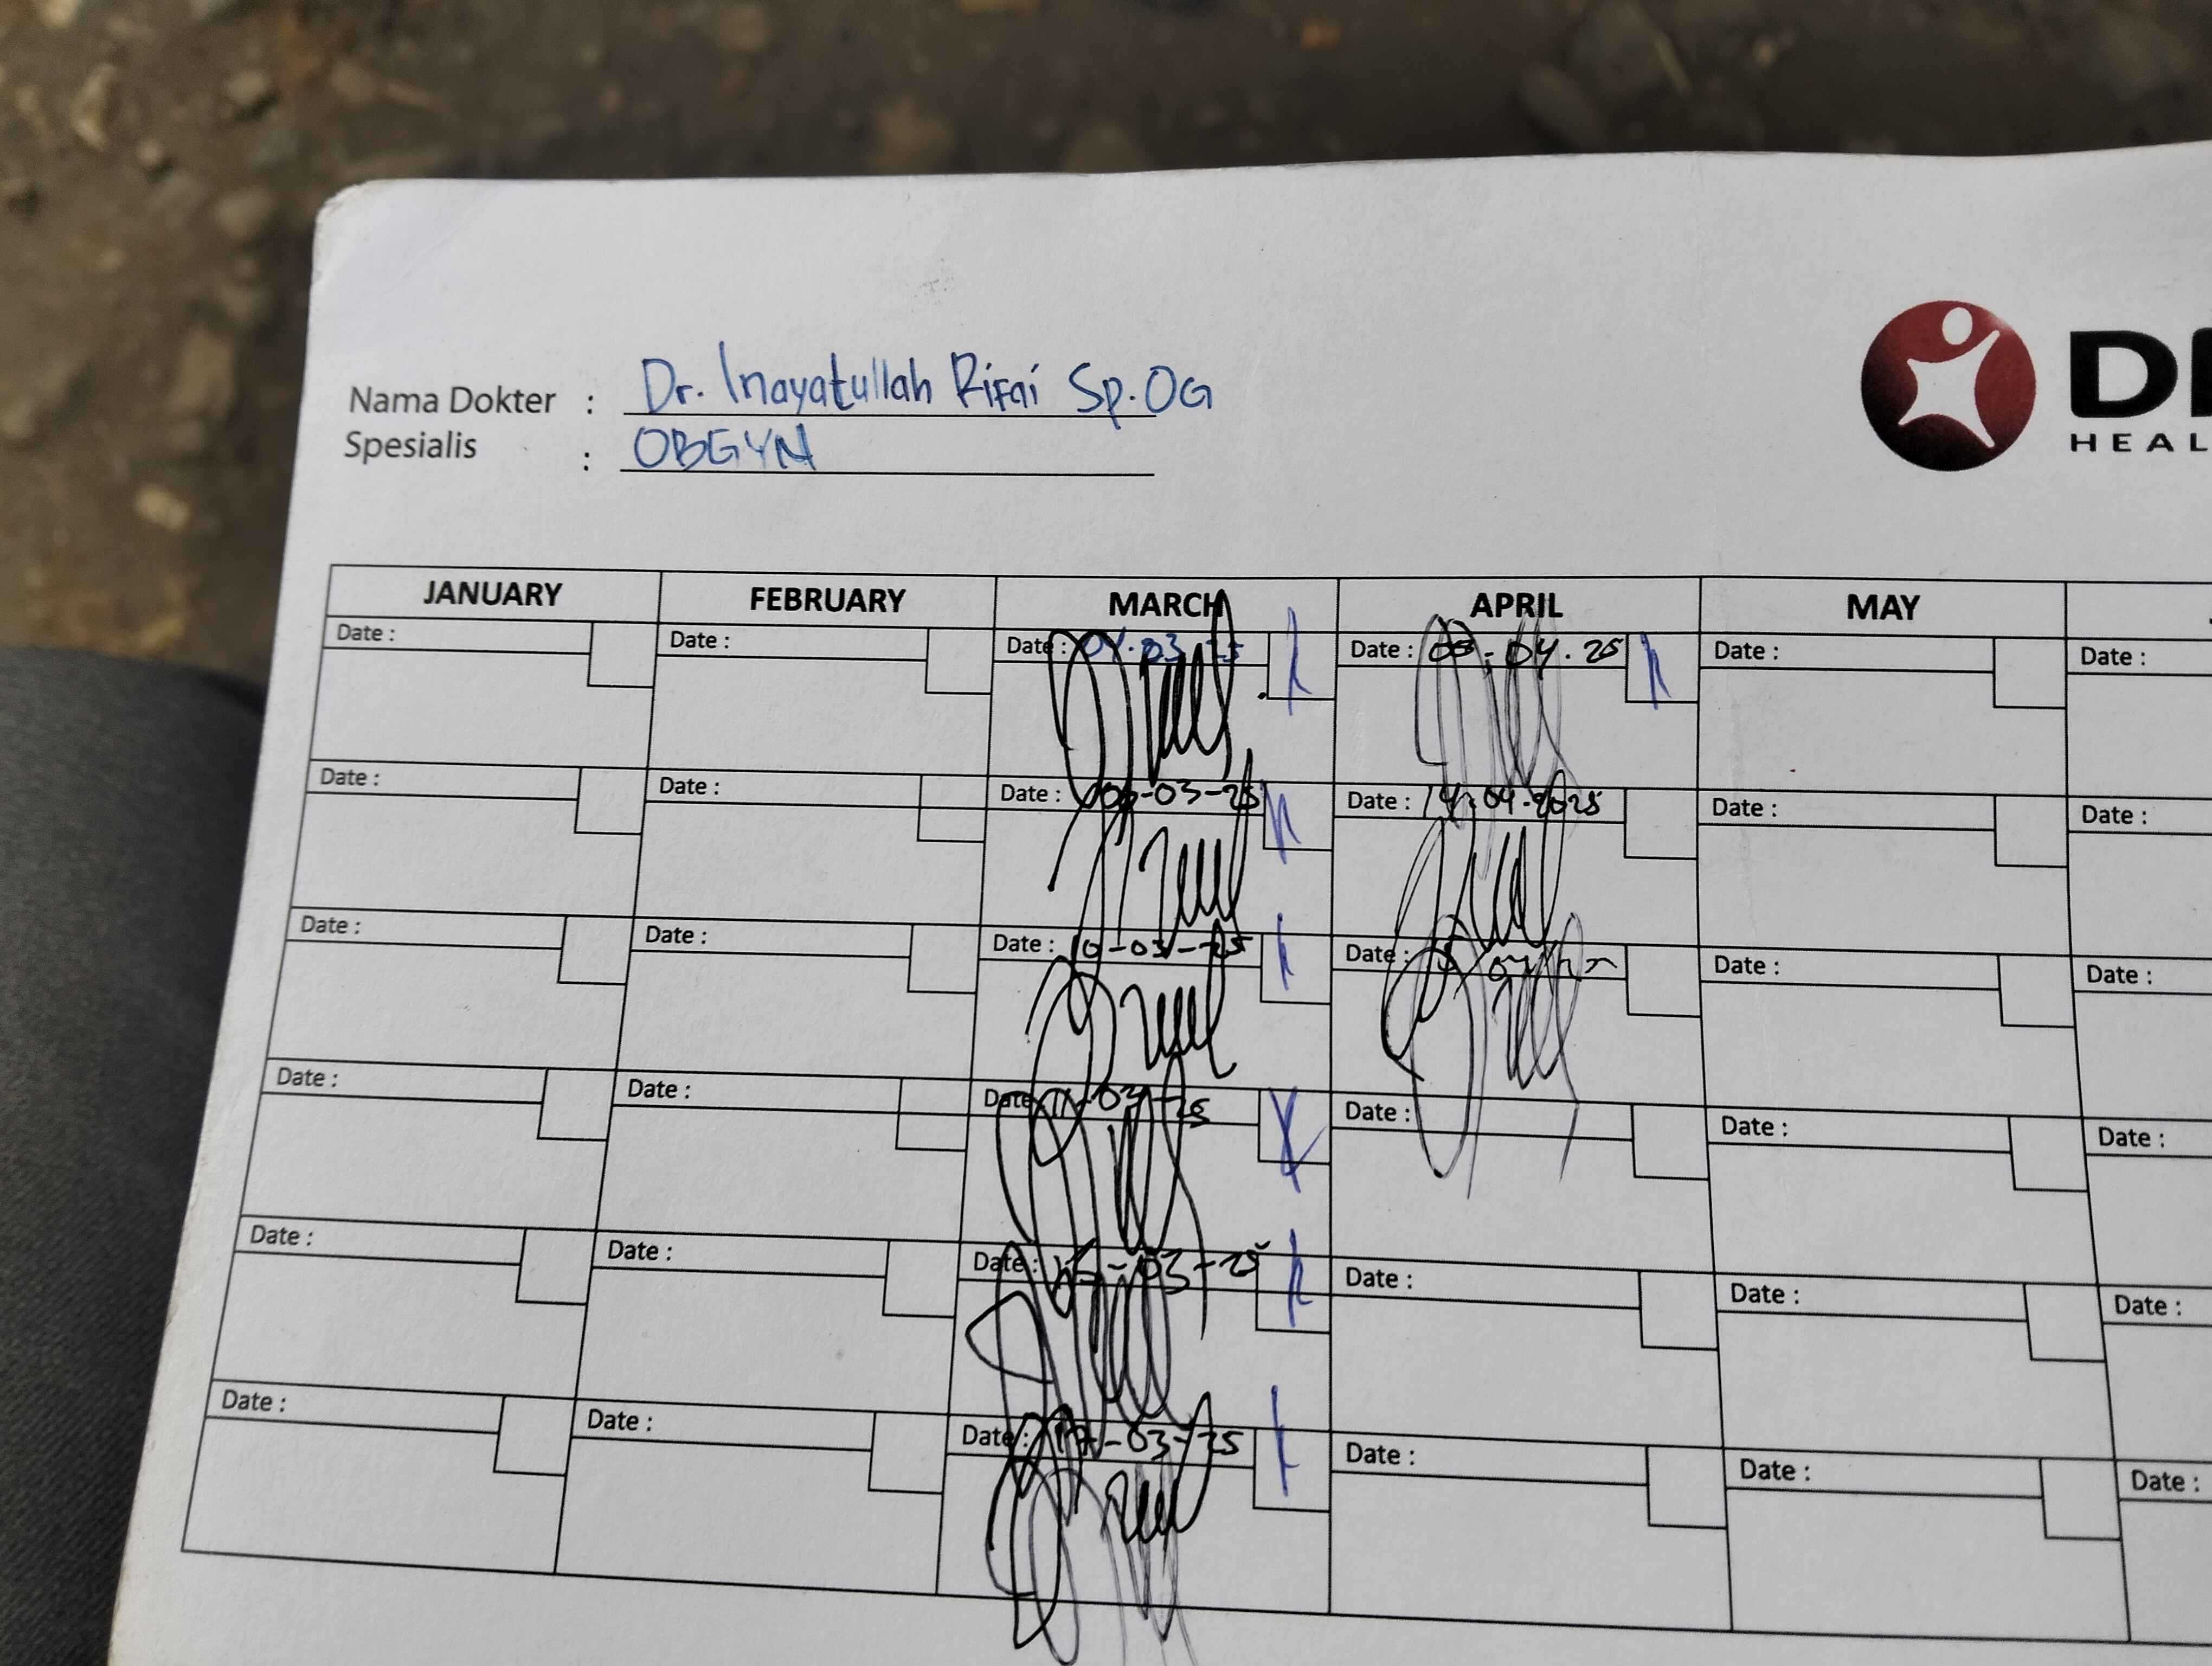 Nama Dokter : Dr. Inayatullah Rifai Sp.OG
Spesialis : OBGYN
HEAL
JANUARY FEBRUARY MARCH APRIL MAY
Date : Date : Date : 04.03.25 Date : 08.04.25 Date : Date :
Date : Date : Date : -03-25 Date : 14.04.2025 Date : Date :
Date : Date : Date : 10-03-25 Date : Date : Date :
Date : Date : Date 11-03-25 Date : Date : Date :
Date : Date : Date : -03-25 Date : Date : Date :
Date : Date : Date : 17-03-25 Date : Date : Date :